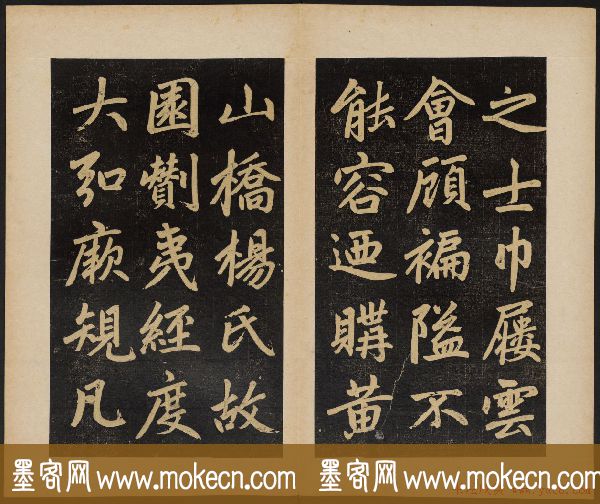 之士巾屨雲
會頋褊隘不
能容迺購黄
山橋楊氏故
園剃夷經度
大弘厥規凡
墨客网 www.mokecn.com
墨客网 www.mokecn.com